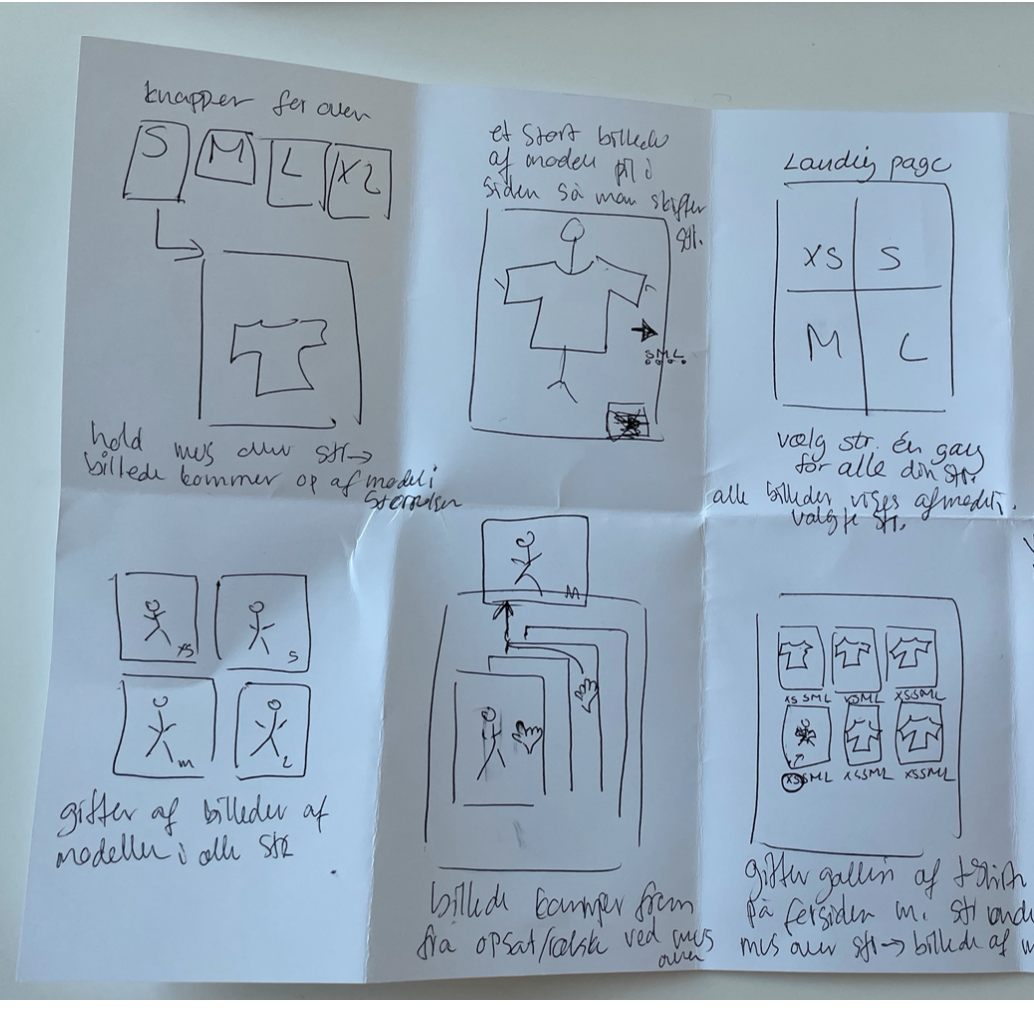 knapper før oven
S M L XL
hold mus over str →
billede kommer op af model i
størrelsen
et stort billede
af model pil i
siden så man skifter
str.
S M L
Landing page
XS S
M L
vælg str. én gang
for alle din str.
alle billeder vises af model i
valgte str.
XS S
M L
gitter af billeder af
modeller i alle str
M
billede kommer frem
fra opsat/ ved mus
over
XS S M L XSML XSSML
XSSML XSSML XSSML
gitter galleri af tshirt
på forsiden m. str unde
mus over str → billede af